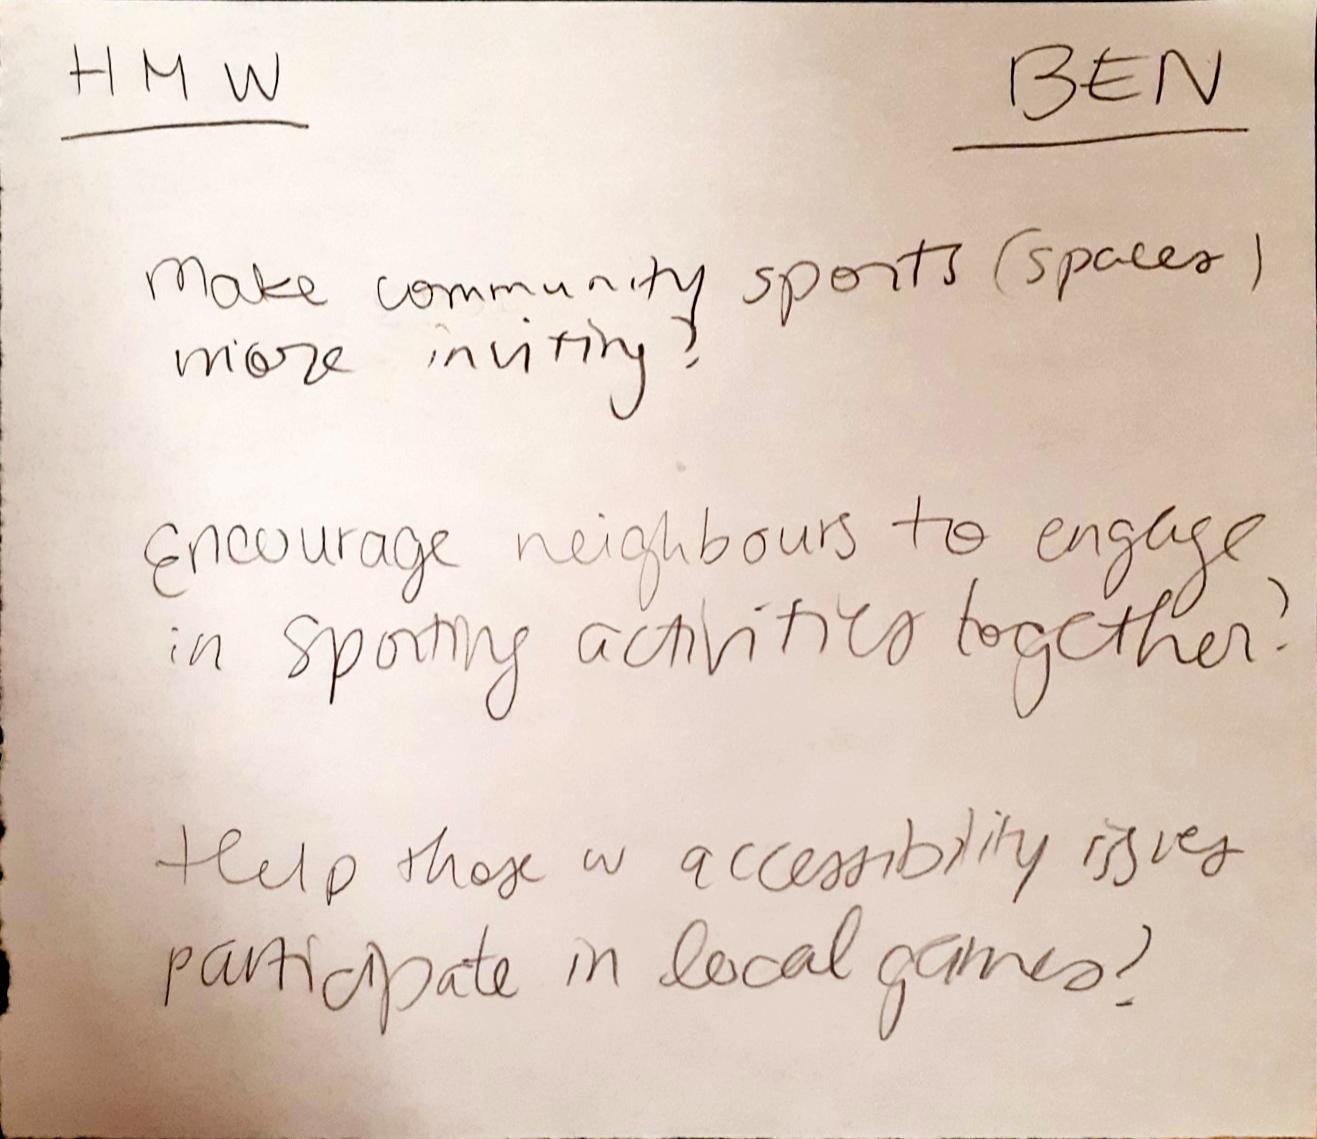 HMW
BEN
Make community sports (spaces)
more inviting?
Encourage neighbours to engage
in sporting activities together?
Help those w accessibility issues
participate in local games?